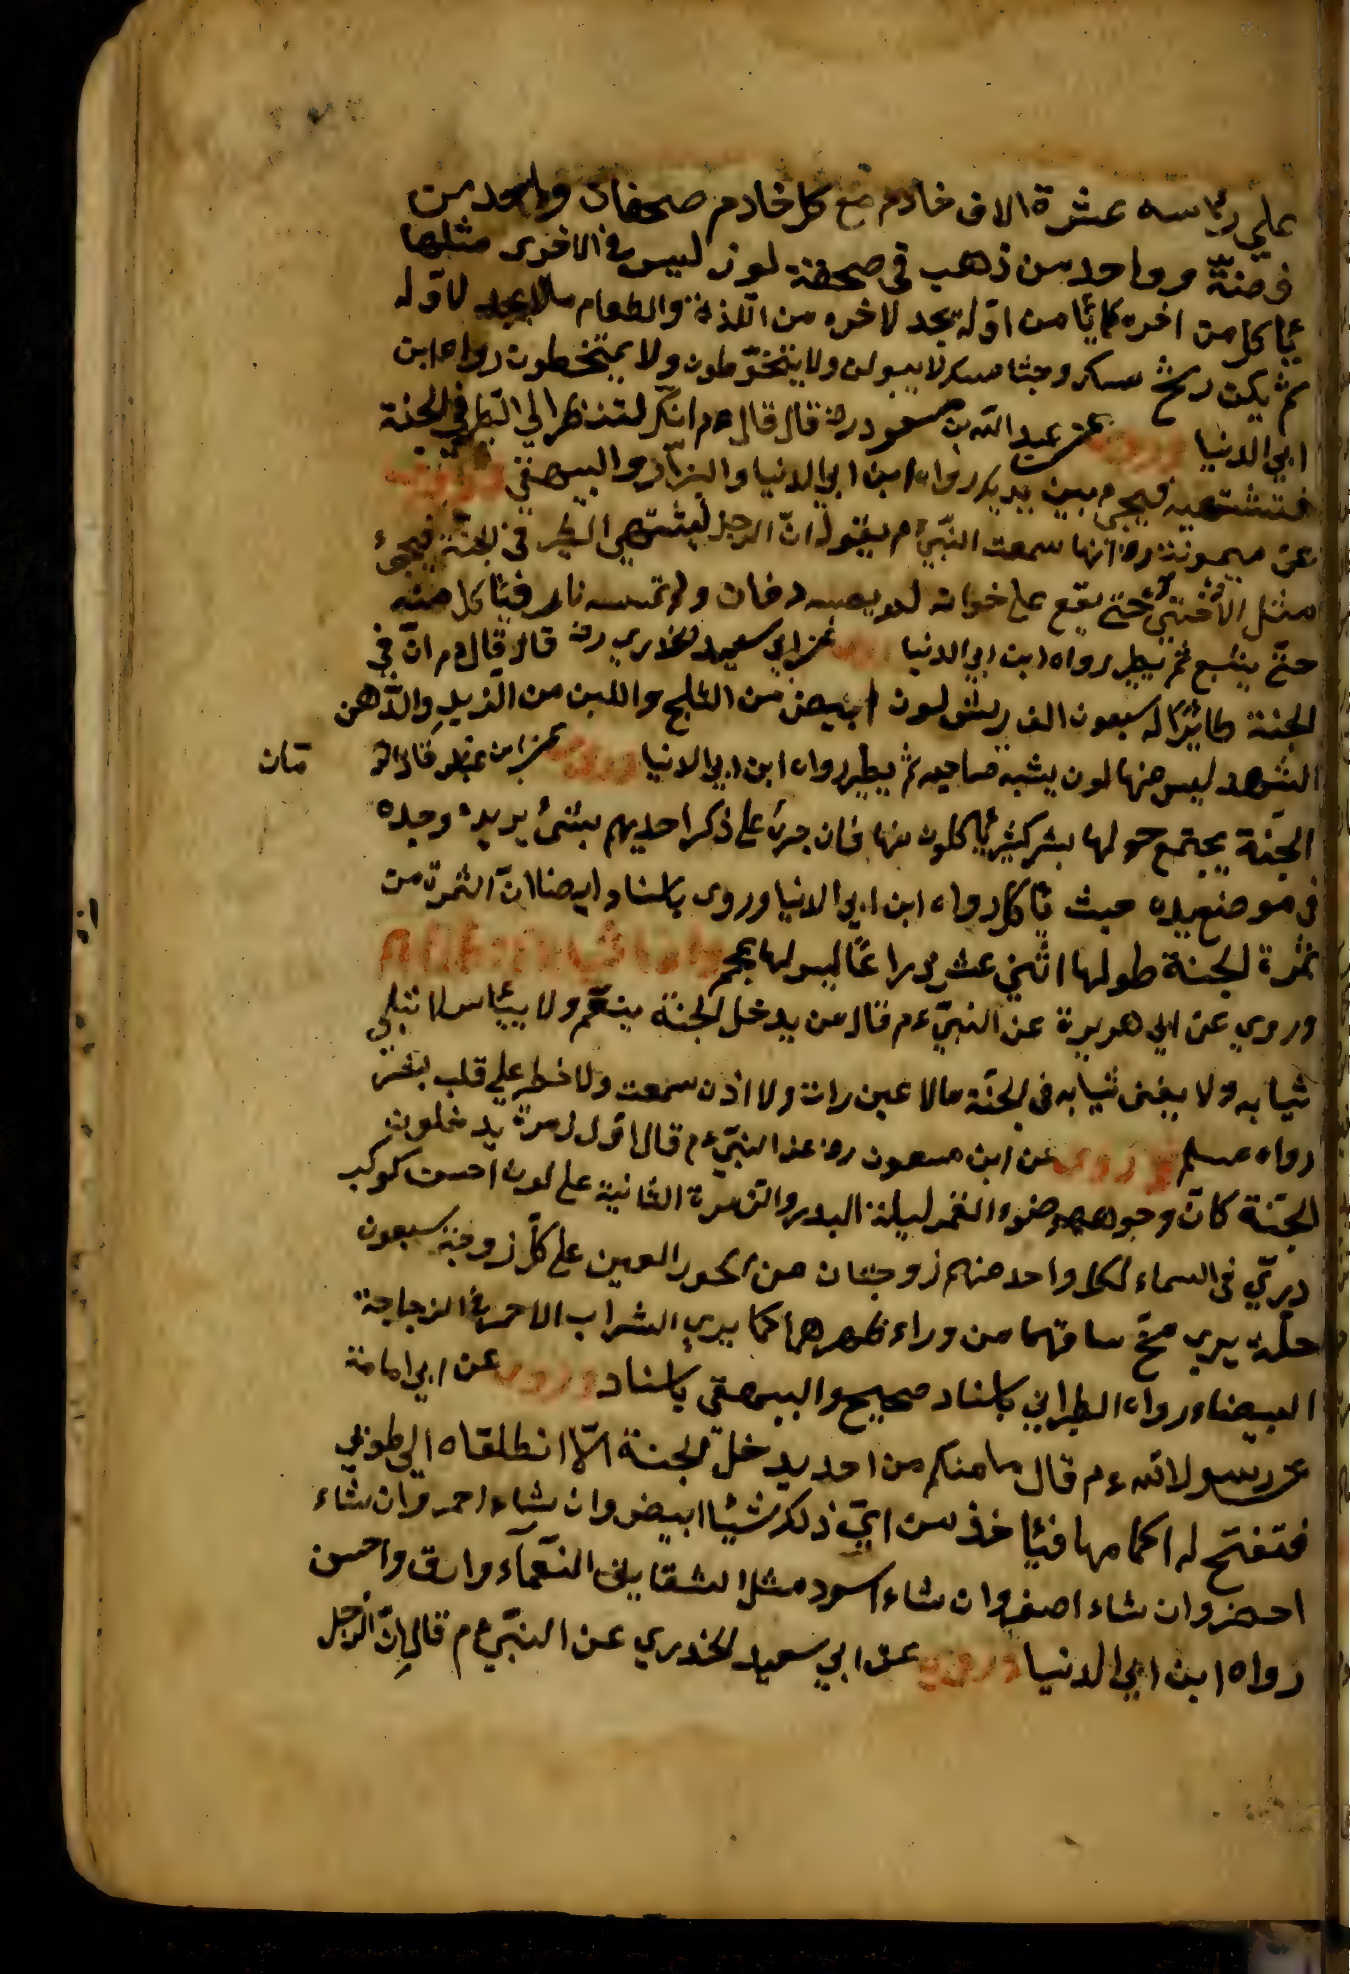 علي رأسه عشرة الاف خادم مع كل خادم صحفان واحد من
فضة وواحد من ذهب في صحفة لون ليس في الاخرى مثلها
يأكل من اخره كما يأ من اوله يجد لاخره من اللذة والطعام مالا يجد لاوله
ثم يكن رشح مسك وجشا مسك لا يبولون ولا يتغوطون ولا يمتخطون رواه ابن
ابي الدنيا وروي عن عبد الله بن مسعود رض قال قال ءم انك لتنظر الي الطير في الجنة
فتشتهيه فيجئ بين يديك رواه ابن ابي الدنيا والبزار والبيهقي وروي
عن ميمونة رض انها سمعت النبي ءم يقول ان الرجل ليشتهي الطير في الجنة فيجئ
مثل البختي حتي يقع علي خوانه لم يصبه دخان ولم تمسه نار فيأكل منه
حتي يشبع ثم يطير رواه ابن ابي الدنيا عن ابي سعيد الخدري رض قال قال ءم ان في
الجنة طائرا له سبعون الف ريش لون ابيض من الثلج والين من الزبد والدهن
الشهد ليس منها لون يشبه صاحبه ثم يطير رواه ابن ابي الدنيا وروي عن ابن عباس قال ان رمان
الجنة يجتمع حولها بشر كثير يأكلون منها فان جري علي ذكر احديهم بشئ يريده وجده
في موضع يده حيث يأكل رواه ابن ابي الدنيا وروي باسناد ايضا ان الثمرة من
ثمرة الجنة طولها اثني عشر ذراعا ليس لها عجم
وروي عن ابي هريرة عن النبي ءم قال من يدخل الجنة ينعم ولا ييأس لا تبلي
ثيابه ولا يفنى شبابه في الجنة مالا عين رات ولا اذن سمعت ولا خطر علي قلب بشر
رواه مسلم وروي عن ابن مسعون رض عن النبي ءم قال اول زمرة يدخلون
الجنة كان وجوههم ضوء القمر ليلة البدر والزمرة الثانية علي لون احسن كوكب
دري في السماء لكل واحد منهم زوجتان من الحور العين علي كل زوجة سبعون
حلة يري مخ ساقهما من وراء ظهرهما كما يري الشراب الاحمر في الزجاجة
البيضاء رواه الطبراني باسناد صحيح والبيهقي باسناد وروي عن ابي امامة
عن رسول الله ءم قال ما منكم من احد يدخل الجنة الا انطلقاه الي طوبي
فتفتح له اكمامها فيأخذ من اي ذلك شيأ ابيض وان شاء احمر وان شاء
اخضر وان شاء اصفر وان شاء اسود مثل الشقايق النعمآء وارق واحسن
رواه ابن ابي الدنيا وروي عن ابي سعيد الخدري عن النبي ءم قال ان الرجل